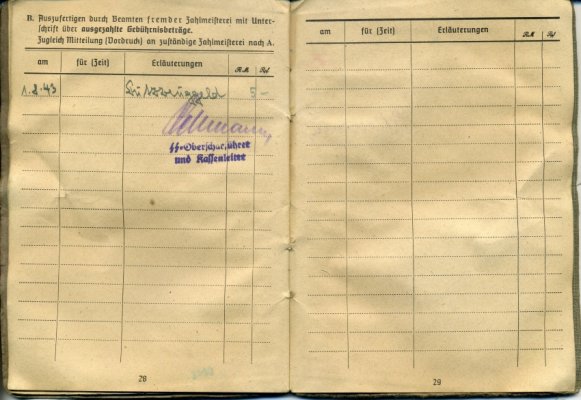 B. Auszufertigen durch Beamten fremder Zahlmeisterei mit Unter-
schrift über ausgezahlte Gebührnisbeträge.
Zugleich Mitteilung (Vordruck) an zuständige Zahlmeisterei nach A.
am für (Zeit) Erläuterungen RM Rpf
1.2.43 Putzzeuggeld 5 -
SS-Oberscharführer
und Kassenleiter
28
am für (Zeit) Erläuterungen RM Rpf
29